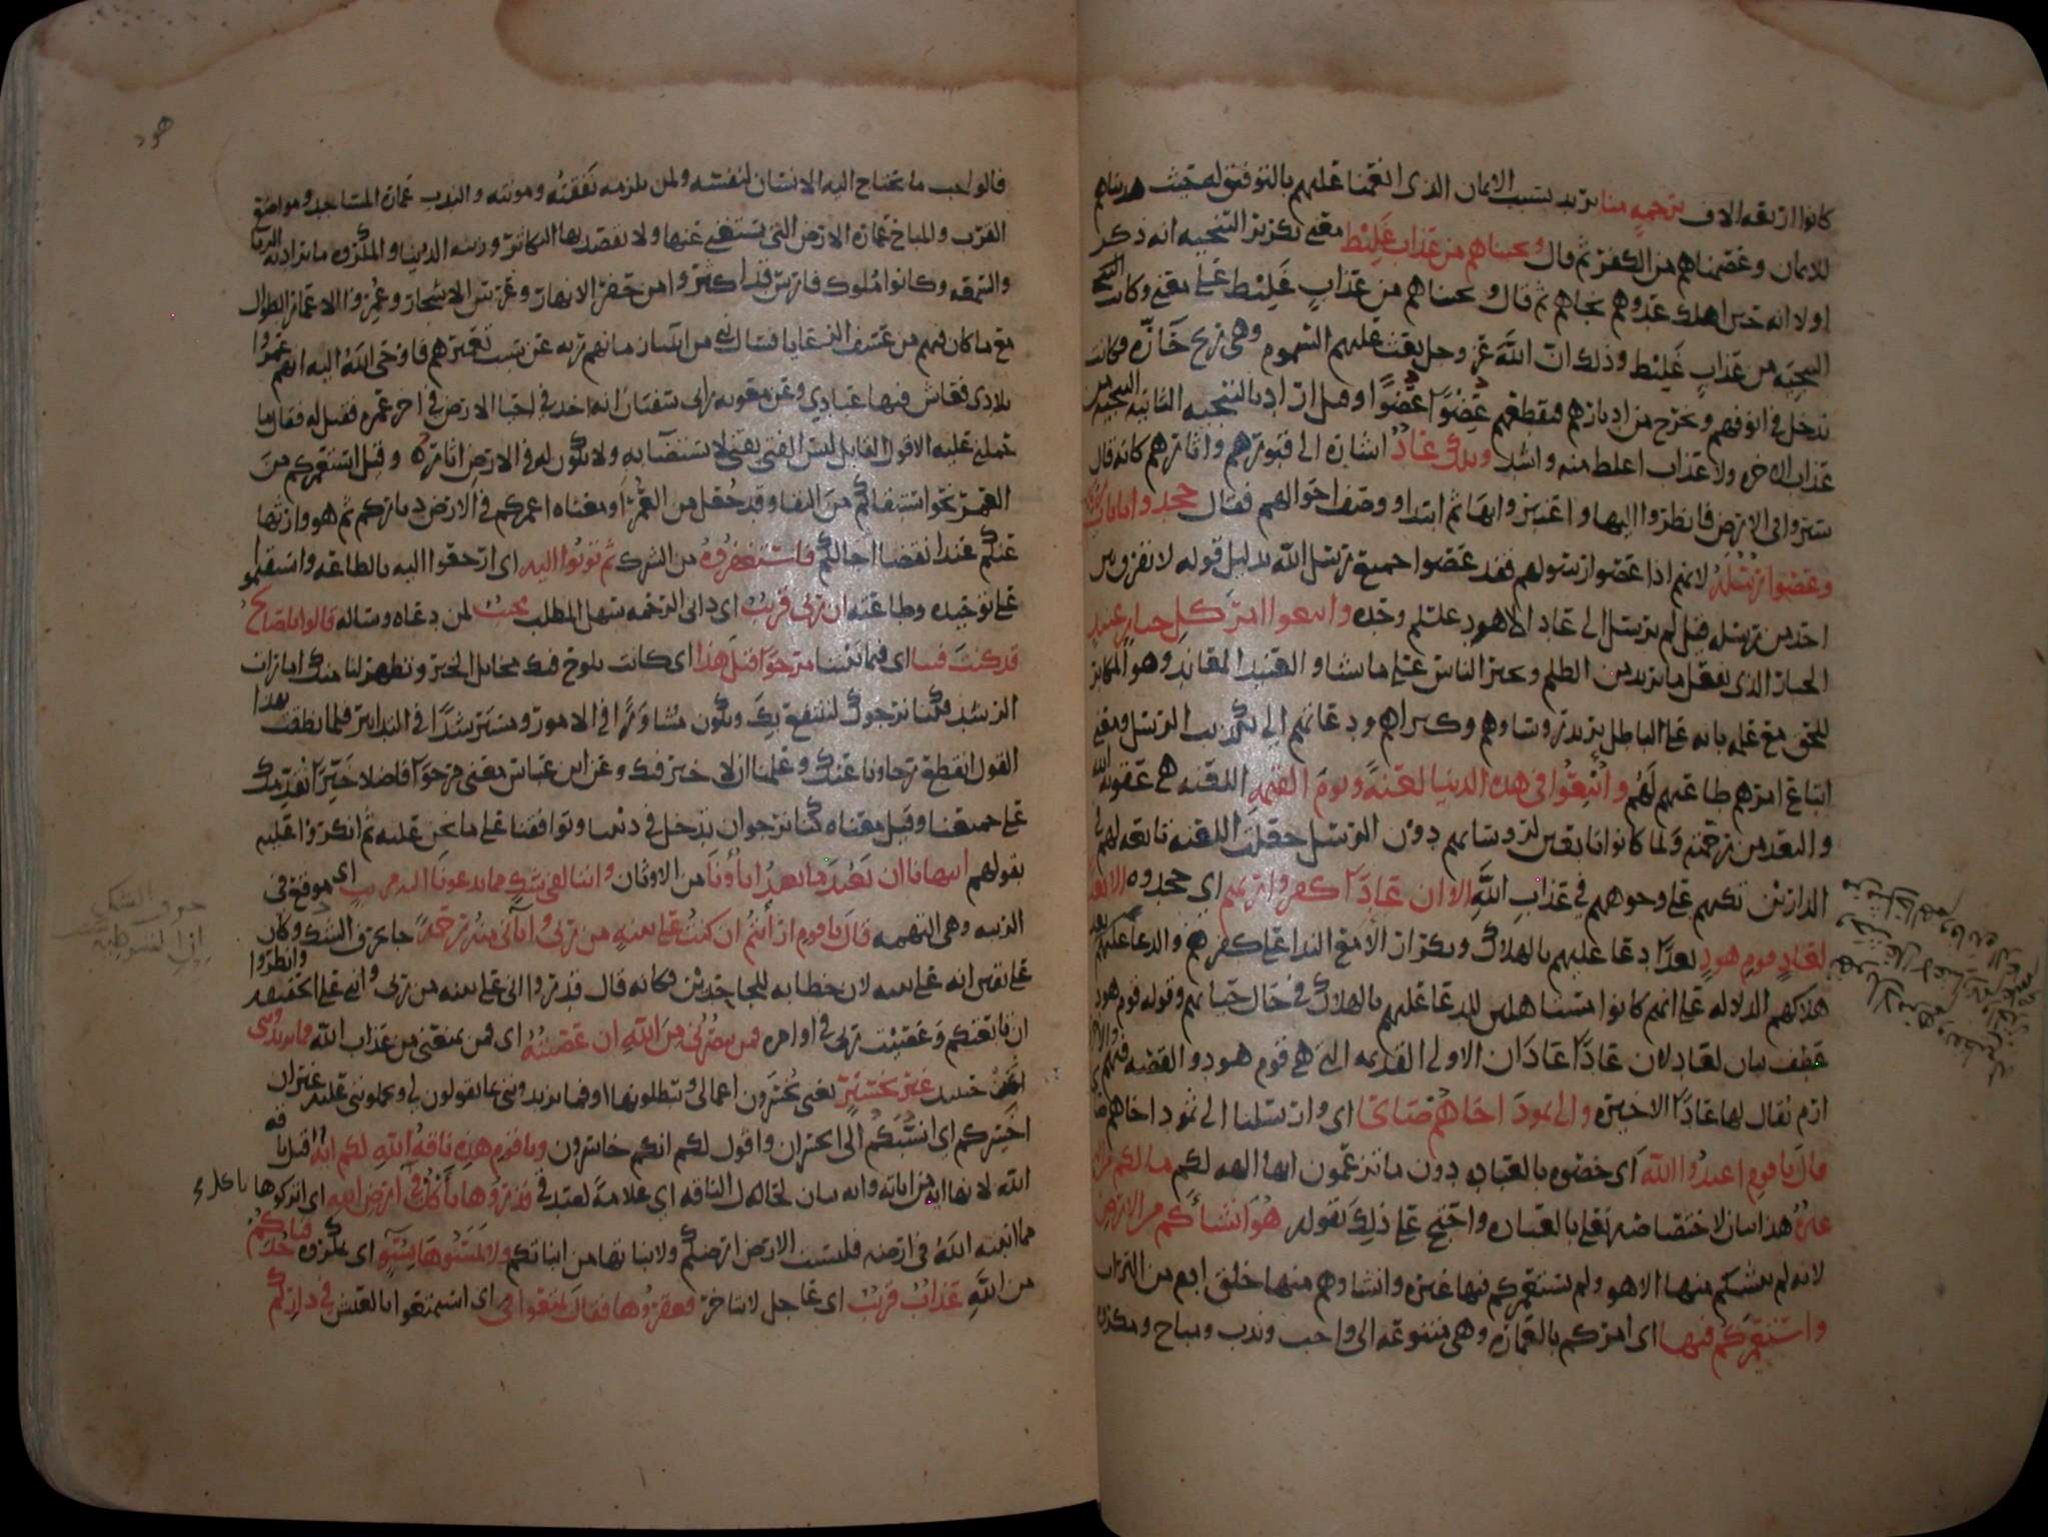 كانوا اربعه الاف برحمة منا يريد بسبب الايمان الذي انعمنا عليهم بالتوفيق له حيث هديناهم
للايمان وعصمناهم من الكفر ثم قال ونجيناهم من عذاب غليظ معنى تكرير التنجيه انه ذكر
اولا انه حين اهلك عدوهم نجاهم ثم قال ونجيناهم من عذاب غليظ على معنى وكانت التنجيه
من عذاب غليظ وذلك ان الله عز وجل بعث عليهم السموم وهي ريح حارّه فكانت
تدخل في انوفهم وتخرج من ادبارهم فتقطعهم عضوًا عضوًا وقيل اراد بالتنجيه الثانيه التنجيه من
عذاب الاخره ولا عذاب اغلظ منه واشد وتلك عاد اشاره الى قبورهم واثارهم كانه قال
سيروا في الارض فانظروا اليها واعتبروا بها ثم ابتدا ووصف احوالهم فقال جحدوا بايات ربهم
وعصوا رسله لانهم اذا عصوا رسولهم فقد عصوا جميع رسل الله بدليل قوله لا نفرق بين
احد من رسله قيل لم يرسل الى عاد الا هود عليلم وحده واتبعوا امر كل جبار عنيد
الجبار الذي يفعل ما يريد من الظلم ويجبر الناس على ما يشا والعنيد المعاند وهو المكابر
للحق مع علمه بانه على الباطل يريد روساوهم وكبراهم ودعاتهم الى تكذيب الرسل ومعنى
اتباع امرهم طاعتهم لهم واتبعوا في هذه الدنيا لعنة ويوم القيمه اللعنه هي عقوبة الله
والبعد من رحمته ولما كانوا تابعين لروسايهم دون الرسل جعلت اللعنه تابعه لهم في
الدارين تكبهم على وجوههم في عذاب الله الا ان عادًا كفروا ربهم اي جحدوه الا بعدا
لعاد قوم هود بعدًا دعا عليهم بالهلاك وتكرار الا مع الندا على كفرهم والدعا عليهم بعد
هلاكهم الدلاله على انهم كانوا مستاهلين للدعا عليهم بالهلاك في حال حياتهم وقوله قوم هود
عطف بيان لعاد لان عادًا عادان الاولى القديمه التي هي قوم هود والقصه فيهم والاخرى
ارم يقال لها عادًا الاخيره والى ثمود اخاهم صالحا اي وارسلنا الى ثمود اخاهم صالحا
قال يا قوم اعبدوا الله اي خصوه بالعباده دون ما تزعمون انها الهه لكم ما لكم من اله
غيره هذا بيان لاختصاصه تعلى بالعباده واحتج على ذلك بقوله هو انشأكم من الارض
لانه لم ينشكم منها الا هو ولم يستعمركم فيها غيره وانشاوهم منها خلق ابيهم من التراب
واستعمركم فيها اي امركم بالعماره وهي متنوعه الى واجب وندب ومباح ومكروه
هود
فالواجب ما يحتاج اليه الانسان لنفسه ولمن يلزمه نفقته ومونته والندب عماره المساجد ومواضع
القرب والمباح عماره الارض التي يستغني عنها ولا يقصد بها التكاثر وزينه الدنيا والمكروه ما يراد به الريا
والترفه وكانوا ملوك فارس قد اكثروا من حفر الانهار وغرس الاشجار وعمروا الاعمار الطوال
مع ما كان فيهم من عسف الرعايا فسال نبي من انبيا زمانهم ربه عن سبب تعميرهم فاوحى الله اليه انهم عمروا
بلادي فعاش فيها عبادي وعن معوبه بن ابي سفيان انه اخذ في احيا الارض في اخر عمره فقيل له فقال ما
حملني عليه الا قول القايل ليس الفتى بفتى لا يستضآ به ولا تكون له في الارض اثاره وقيل استعمركم من
العمر نحو استبقاكم من البقا وقد جعل من العمرى ومعناه اعمركم في الارض دياركم ثم هو وارثها
عنكم عند انقضا اجالكم فاستغفروه من الشرك ثم توبوا اليه اي ارجعوا اليه بالطاعه واستقيموا
على توحيده وطاعته ان ربي قريب اي داني الرحمه سهل المطلب مجيب لمن دعاه وساله قالوا يا صالح
قد كنت فينا اي فيما بيننا مرجوًا قبل هذا اي كانت تلوح فيك مخايل الخير وتظهر لنا منك امارات
الرشد فكنا نرجوك لننتفع بك وتكون مشاورًا في الامور ومسترشدًا في التدابير فلما نطقت بهذا
القول انقطع رجاونا عنك وعلمنا ان لا خير فيك وعن ابن عباس معنى مرجوًا فاضلا خيّرًا نقدمك
على جميعنا وقيل معناه كنا نرجو ان تدخل في ديننا وتوافقنا على ما نحن عليه ثم انكروا عليه
بقولهم اتنهانا ان نعبد ما يعبد اباؤنا من الاوثان واننا لفي شك مما تدعونا اليه مريب اي موقع في
الريبه وهي التهمه قال يا قوم ارايتم ان كنت على بينه من ربي واتاني منه رحمة جا بحرف الشك وكان
على يقين انه على بينه لان خطابه للجاحدين فكانه قال قدروا اني على بينه من ربي واني على الحقيقه وانظروا
ان تابعتكم وعصيت ربي في اوامره فمن ينصرني من الله ان عصيته اي فمن يمنعني من عذاب الله فما تزيدونني
حينيذ غير تخسير يعني تخسرون اعمالي وتبطلونها او فما تزيدونني بما تقولون لي وتحملونني عليه غير ان
اخسركم اي انسبكم الى الخسران واقول لكم انكم خاسرون ويا قوم هذه ناقه الله لكم ايه
الله لانها ايه من اياته وايه بيان لحاله اي علامة لعبد في فذروها تأكل في ارض الله اي اتركوها تاكل
مما انبته الله في ارضه فليست الارض ارضكم ولا نباتها من انباتكم ولا تمسوها بسوء اي بمكروه فياخذكم
من الله عذاب قريب اي عاجل لا يتاخر فعقروها فقال تمتعوا اي استمتعوا بالعيش في داركم